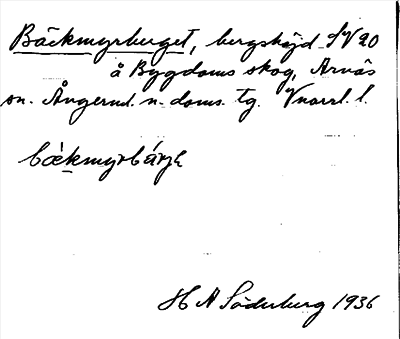 Bäckmyrberget, bergshöjd SV 20
å Bygdoms skog, Arnäs
sn. Ångerml. n. doms. tg. Vnorrl. l.
bækmyrbárjə
H A Söderberg 1936